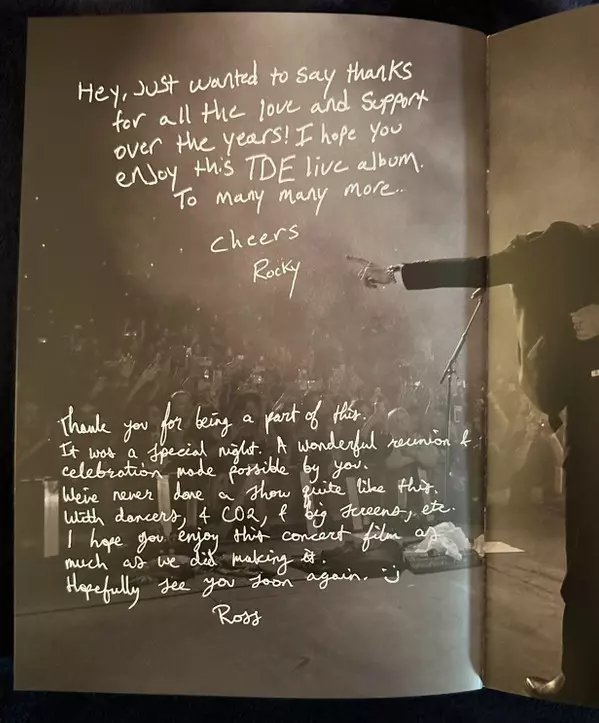 Hey, Just wanted to say thanks
for all the love and support
over the years! I hope you
enjoy this TDE live album.
To many many more..
Cheers
Rocky
Thank you for being a part of this.
It was a special night. A wonderful reunion &
celebration made possible by you.
We've never done a show quite like this.
With dancers, & CO2, & big screens, etc.
I hope you enjoy this concert film as
much as we did making it.
Hopefully see you soon again. :)
Ross